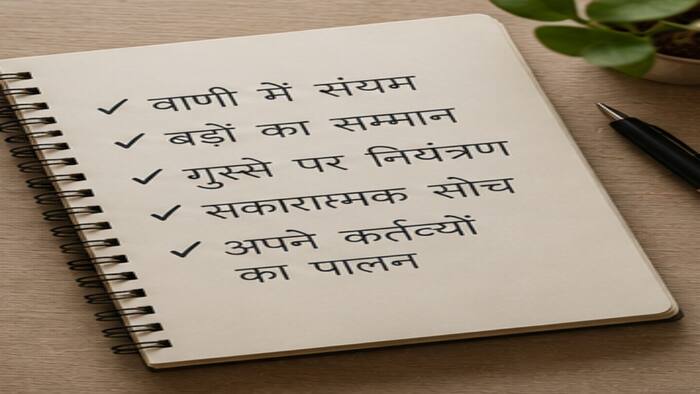 ✓ वाणी में संयम
✓ बड़ों का सम्मान
✓ गुस्से पर नियंत्रण
✓ सकारात्मक सोच
✓ अपने कर्तव्यों
का पालन